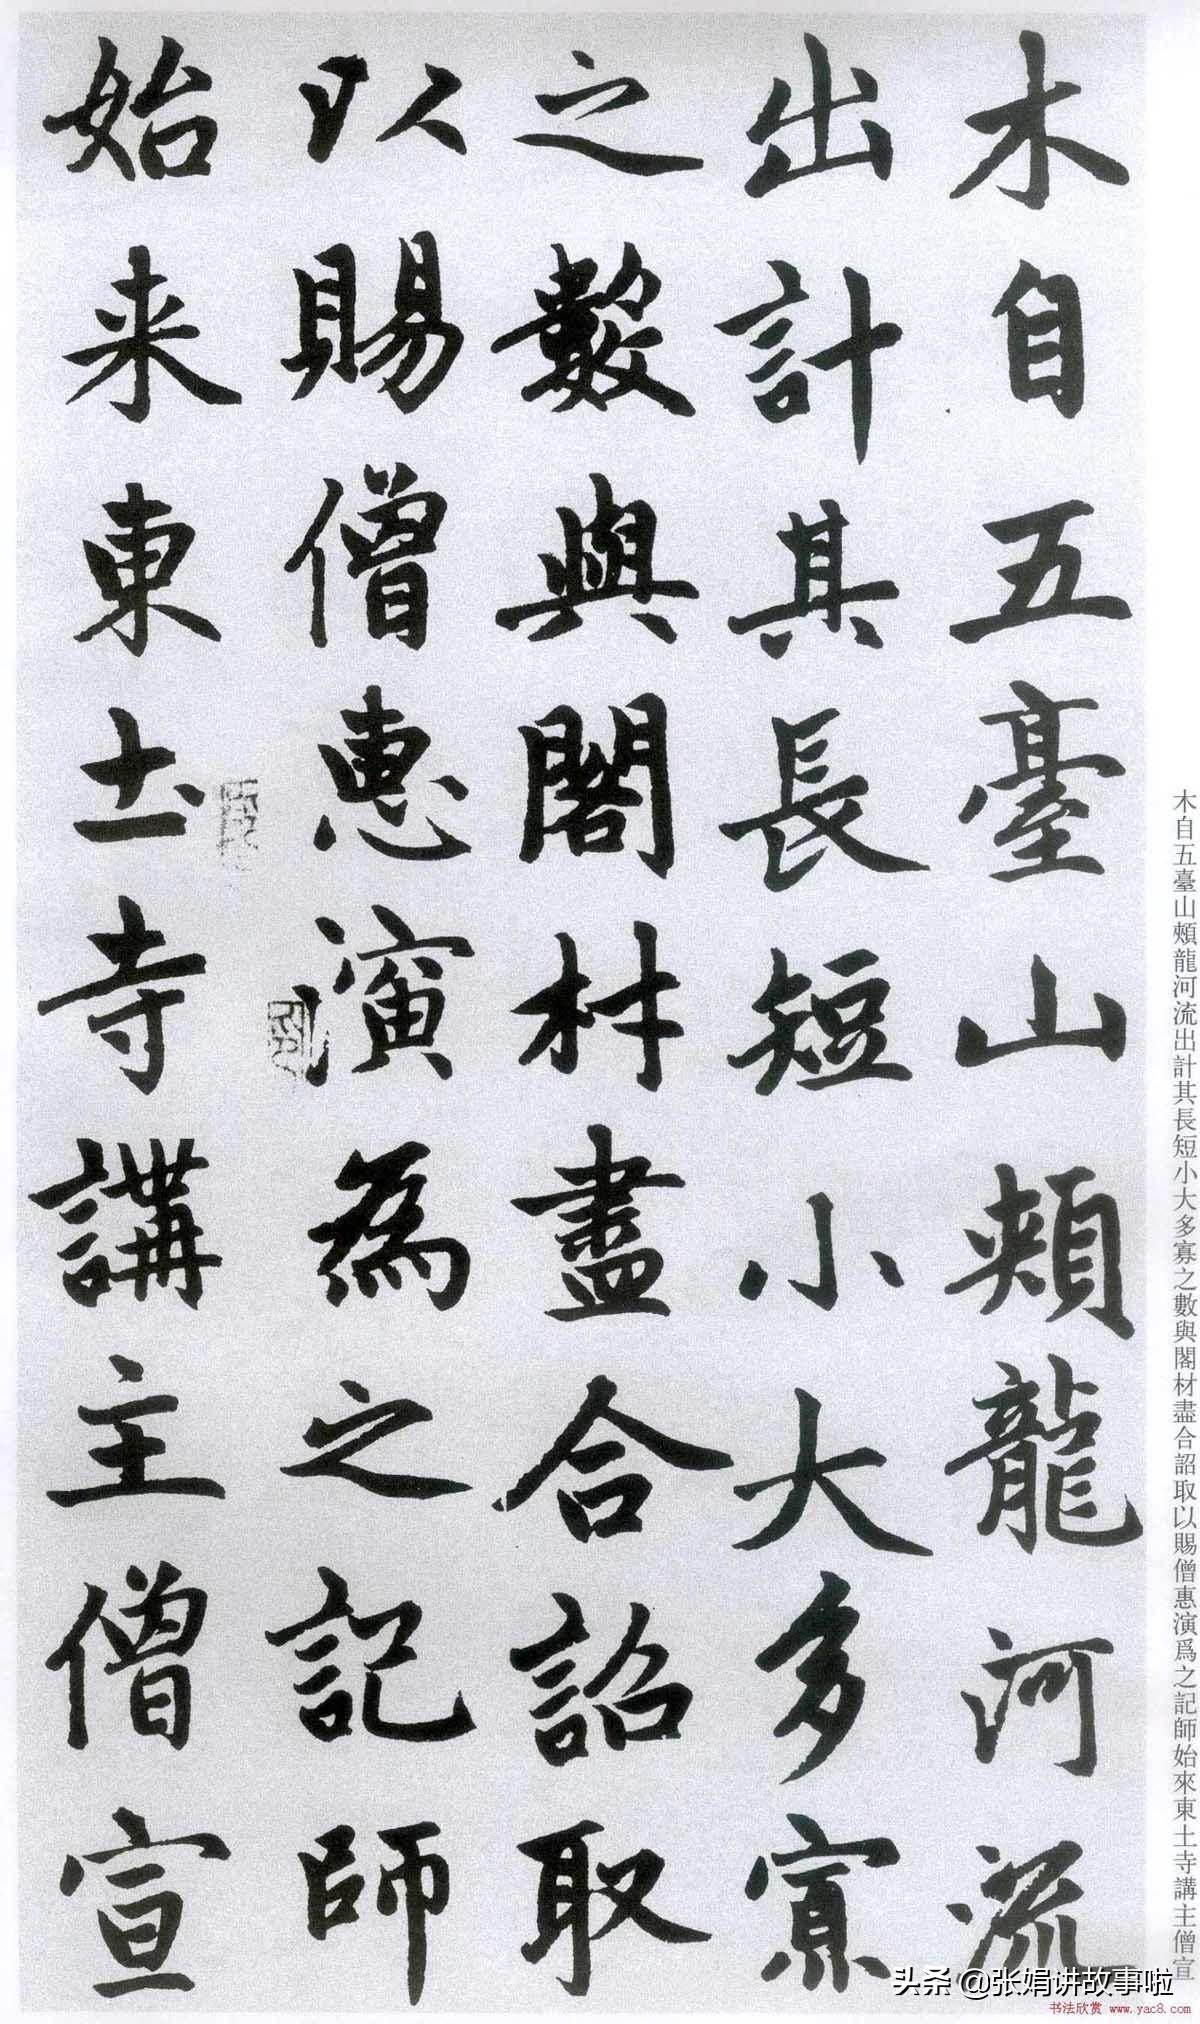 木自五臺山頰龍河流
出計其長短小大多寡
之數與閣材盡合詔取
以賜僧惠演為之記師
始来東土寺講主僧宣
木自五臺山頰龍河流出計其長短小大多寡之數與閣材盡合詔取以賜僧惠演爲之記師始來東土寺講主僧宣
头条 @张娟讲故事啦
书法欣赏 www.yac8.com